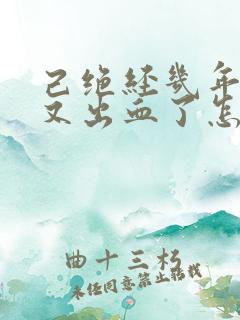 已绝经几年
又出血了怎
曲十三杉
未经同意禁止转载